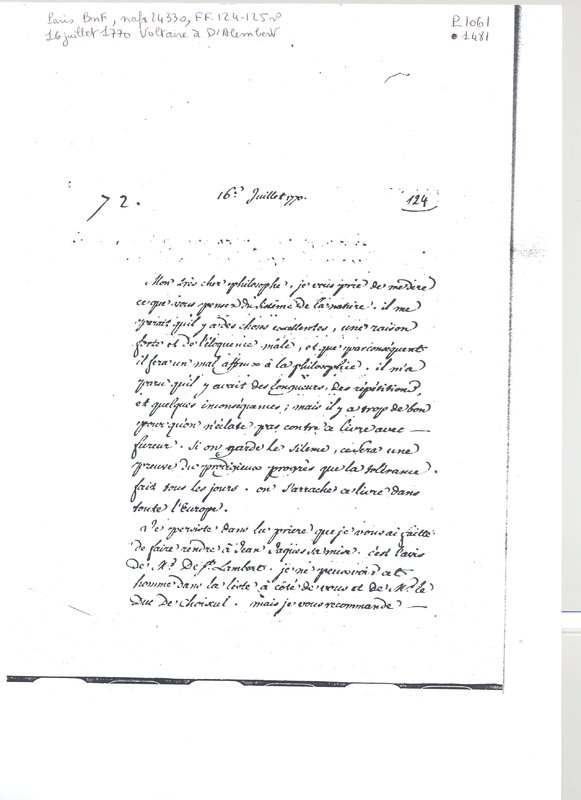 Paris BnF, nafr 24330, FF. 124-125 v°
16 juillet 1770 Voltaire à D'Alembert
P. 1061
1481
72.
16e. Juillet 1770.
124
Mon très cher philosophe, je vous prie de me dire
ce que vous pensez du Sistême de la nature. il me
parait qu'il y a des choses excellentes, une raison
forte et de l'éloquence mâle, et que par conséquent
il fera un mal affreux à la philosophie. il m'a
paru qu'il y avait des longueurs, des répétitions,
et quelques inconséquences ; mais il y a trop de bon
pour qu'on n'éclate pas contre ce livre avec —
fureur. Si on garde le silence, ce sera une
preuve du prodigieux progrès que la tolérance
fait tous les jours. on s'arrache ce livre dans
toute l'Europe.
Je persiste dans la priere que je vous ai faitte
de faire rendre à Jean Jaques sa mise. c'est l'avis
de Mr. De St. Lambert. je ne peux voir cet
homme dans la liste à côté de vous et de Mr. le
Duc de Choiseul. mais je vous recommande —